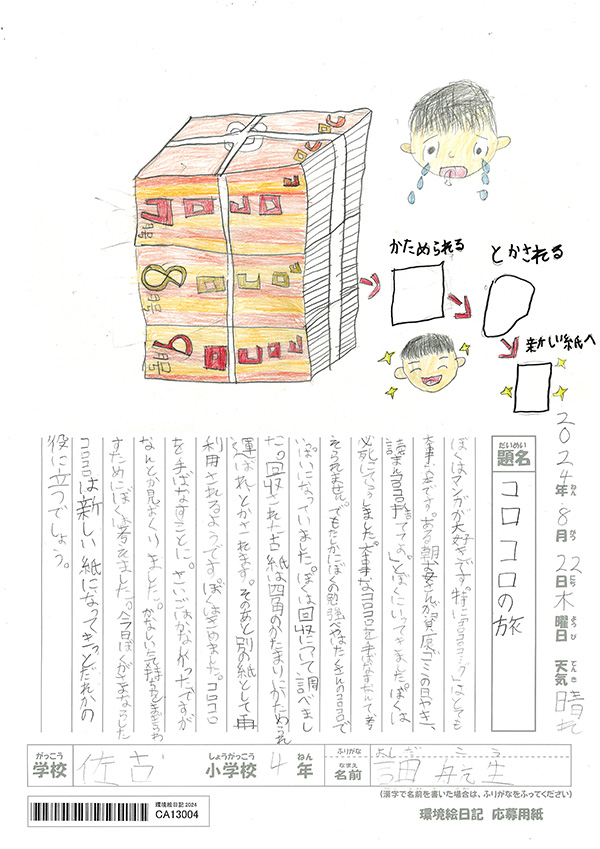 かためられる
とかされる
新しい紙へ
7月号
コロコロ
8月号
コロコロ
9月号
コロコロ
2024年8月22日木曜日 天気 晴れ
ねん
がつ
にち
ようび
てんき
だいめい
題名
コロコロの旅
ぼくはマンガが大好きです。特に「コロコロコミック」はとても
大事な本です。ある朝お母さんが「資原ゴミの日やき、
読まんコロコロ捨ててよ。」とぼくにいってきました。ぼくは
必死にていこうしました。大事なコロコロを手ばなすなんて、考
えられません。でもたしかにぼくの勉強べやはたくさんのコロコロで
いっぱいになっていました。ぼくは回収について調べまし
た。回収された古紙は四角のかたまりにかためられ
運ばれとかされます。そのあと別の紙として再
利用されるようです。ぼくはきめました。コロコロ
を手ばなすことに。さいごはかなしかったですが
なんとか見おくりました。かなしい気持ちをまぎらわ
すためにぼくは考えました。今日ぼくがさよならした
コロコロは新しい紙になってきっとだれかの
役に立つでしょう。
がっこう
学校
佐古
しょうがっこう
小学校
4
ねん
年
ふりがな
よしだ こうき
なまえ
名前
航生
(漢字で名前を書いた場合は、ふりがなをふってください)
環境絵日記2024
CA13004
環境絵日記 応募用紙